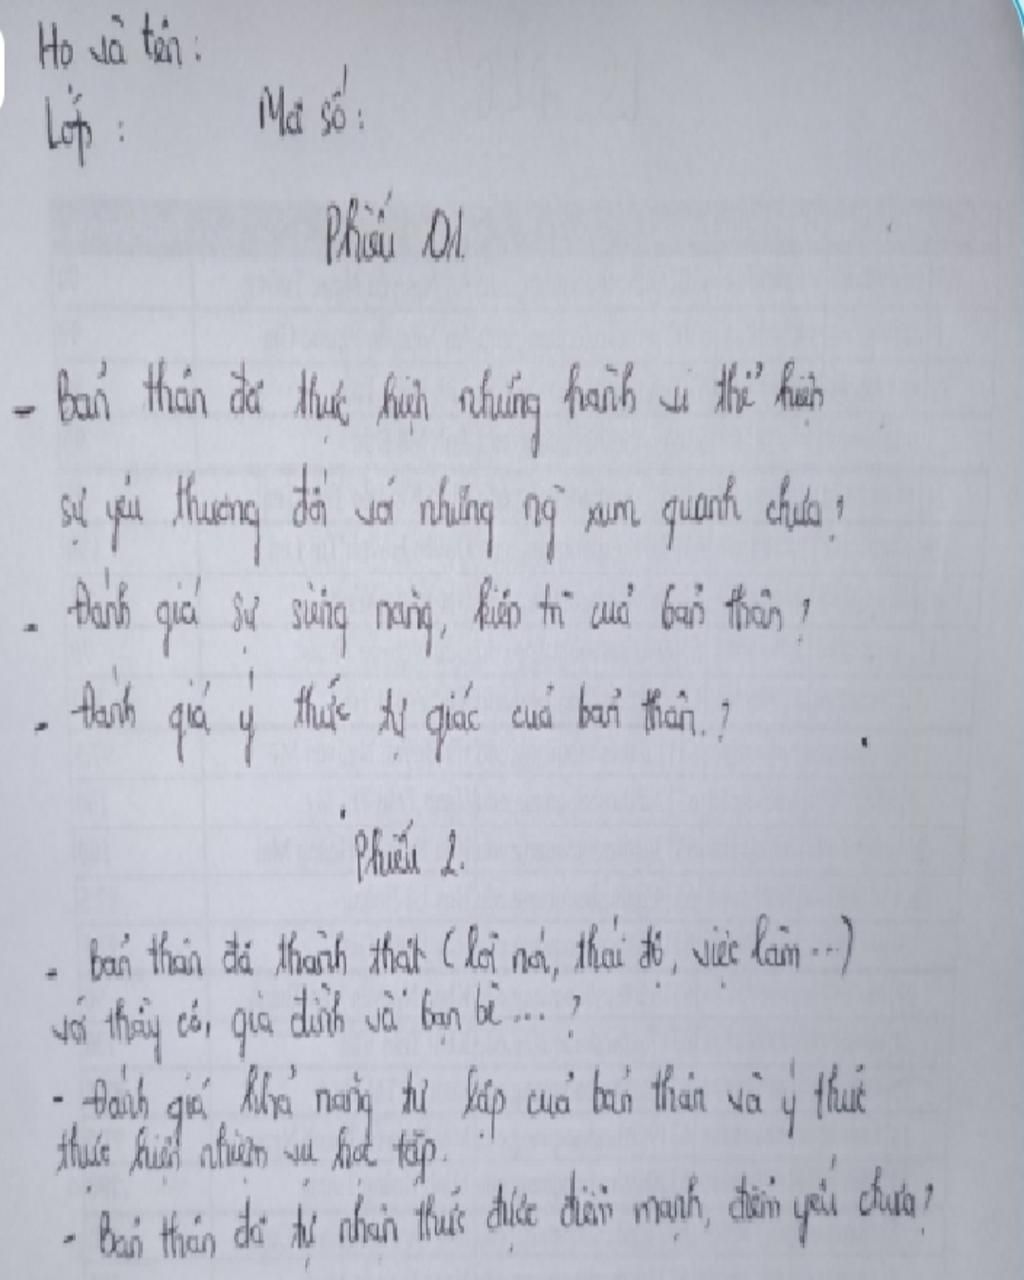 Họ và tên:
Lớp : Mã số:
Phiếu 01.
- Bản thân đã thực hiện những hành vi thể hiện
sự yêu thương đối với những ng xum quanh chưa?
- Đánh giá sự siêng năng, kiên trì của bản thân?
- Đánh giá ý thức tự giác của bản thân.?
Phiếu 2.
- Bản thân đã thành thật (lời nói, thái độ, việc làm...)
với thầy cô, gia đình và bạn bè...?
- Đánh giá khả năng tự lập của bản thân và ý thức
thực hiện nhiệm vụ học tập.
- Bản thân đã tự nhận thức được điểm mạnh, điểm yếu chưa?